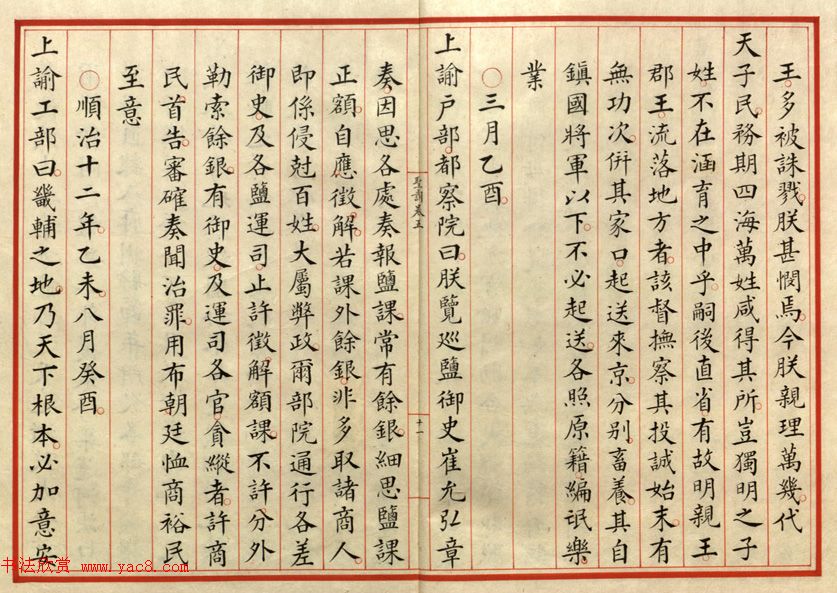 王多被誅戮朕甚憫焉今朕親理萬幾代
天子民務期四海萬姓咸得其所豈獨明之子
姓不在涵育之中乎嗣後直省有故明親王
郡王流落地方者該督撫察其投誠始末有
無功次併其家口起送來京分別畜養其自
鎮國將軍以下不必起送各照原籍編氓樂
業
○三月乙酉
上諭戶部都察院曰朕覽巡鹽御史崔允弘章
聖訓卷五
十一
奏因思各處奏報鹽課常有餘銀細思鹽課
正額自應徵解若課外餘銀非多取諸商人
即係侵尅百姓大屬弊政爾部院通行各差
御史及各鹽運司止許徵解額課不許分外
勒索餘銀有御史及運司各官貪縱者許商
民首告審確奏聞治罪用布朝廷恤商裕民
至意
○順治十二年乙未八月癸酉
上諭工部曰畿輔之地乃天下根本必加意安
书法欣赏 www.yac8.com